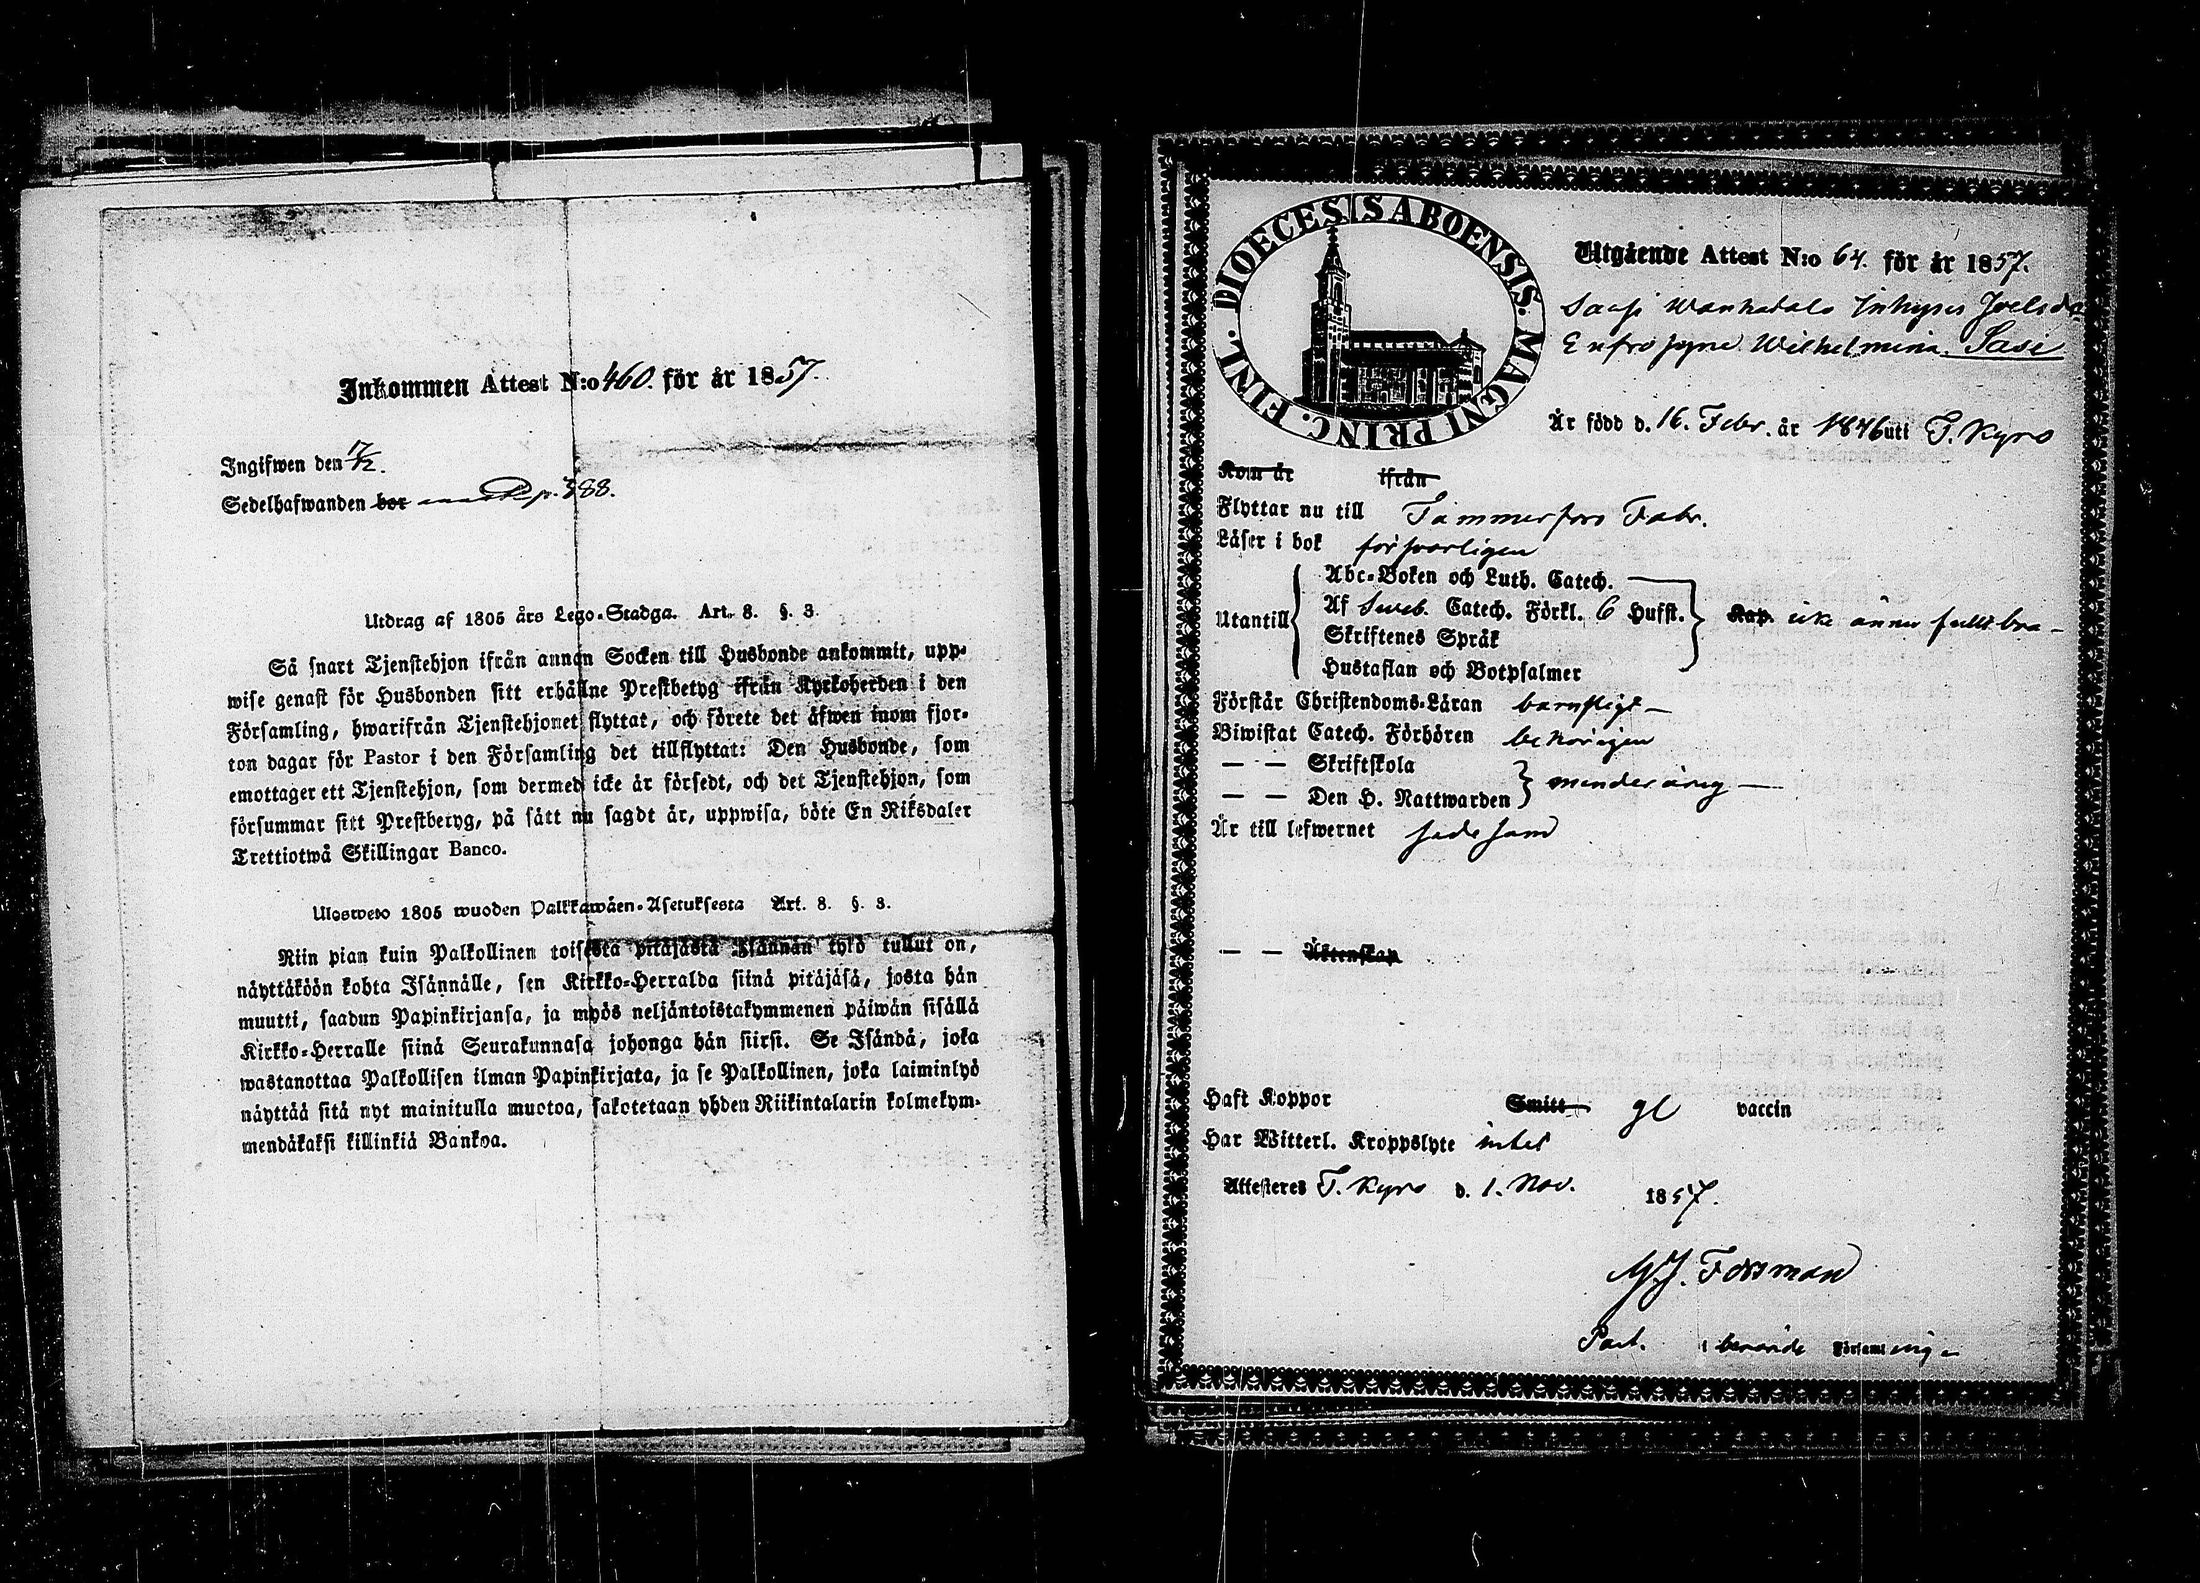 Inkommen Attest N:o 460. för år 1857.
Ingifwen den 7/12.
Sedelhafwanden bor p. 388.
Utdrag af 1805 års Lego-Stadga. Art. 8. §. 3.
Så snart Tjenstehjon ifrån annan Socken till Husbonde ankommit, upp-
wise genast för Husbonden sitt erhållne Prestbetyg ifrån Kyrkoherden i den
Församling, hwarifrån Tjenstehjonet flyttat, och förete det äfwen inom fjor-
ton dagar för Pastor i den Församling det tillflyttat: Den Husbonde, som
emottager ett Tjenstehjon, som dermed icke är försedt, och det Tjenstehjon, som
försummar sitt Prestbetyg, på sätt nu sagdt är, uppwisa, böte En Riksdaler
Trettiotwå Skillingar Banco.
Ulosweto 1805 wuoden Palkkawäen-Asetuksesta Art. 8. §. 3.
Niin pian kuin Palkollinen toisesta pitäjästä Isännän tykö tullut on,
näyttäköön kohta Isännälle, sen Kirkko-Herralda siinä pitäjäsä, josta hän
muutti, saadun Papinkirjansa, ja myös neljäntoistakymmenen päiwän sisällä
Kirkko-Herralle siinä Seurakunnasa johonga hän siirsi. Se Isändä, joka
wastanottaa Palkollisen ilman Papinkirjata, ja se Palkollinen, joka laiminlyö
näyttää sitä nyt mainitulla muotoa, sakotetaan yhden Riikintalarin kolmekym-
mendäkaksi killinkiä Bankoa.
DIOECESIS ABOENSIS. MAGNI PRINC. FINL.
Utgående Attest N:o 64. för år 1857.
Inhyses Joelsd
Eufrosyne Wilhelmina Sasi
Är född d. 16. Febr. år 1846 uti T. Kyro
Kom år ifrån
Flyttar nu till Tammerfors Fabr.
Läser i bok försvarligen
Utantill
Abc-Boken och Luth. Catech.
Af Sweb. Catech. Förkl. 6 Hufst.
Skriftenes Språk
Hustaflan och Botpsalmer
Kap. icke ännu
Förstår Christendoms-Läran barnsligt
Biwistat Catech. Förhören behörigen
— — Skriftskola
— — Den H. Nattwarden
minderårig
Är till lefwernet sedesam
— — Äktenskap
Haft Koppor Smitt gl vaccin
Har Witterl. Kroppslyte intet
Attesteres T. Kyro d. 1. Nov. 1857.
Forsman
Past. i berörde Församling